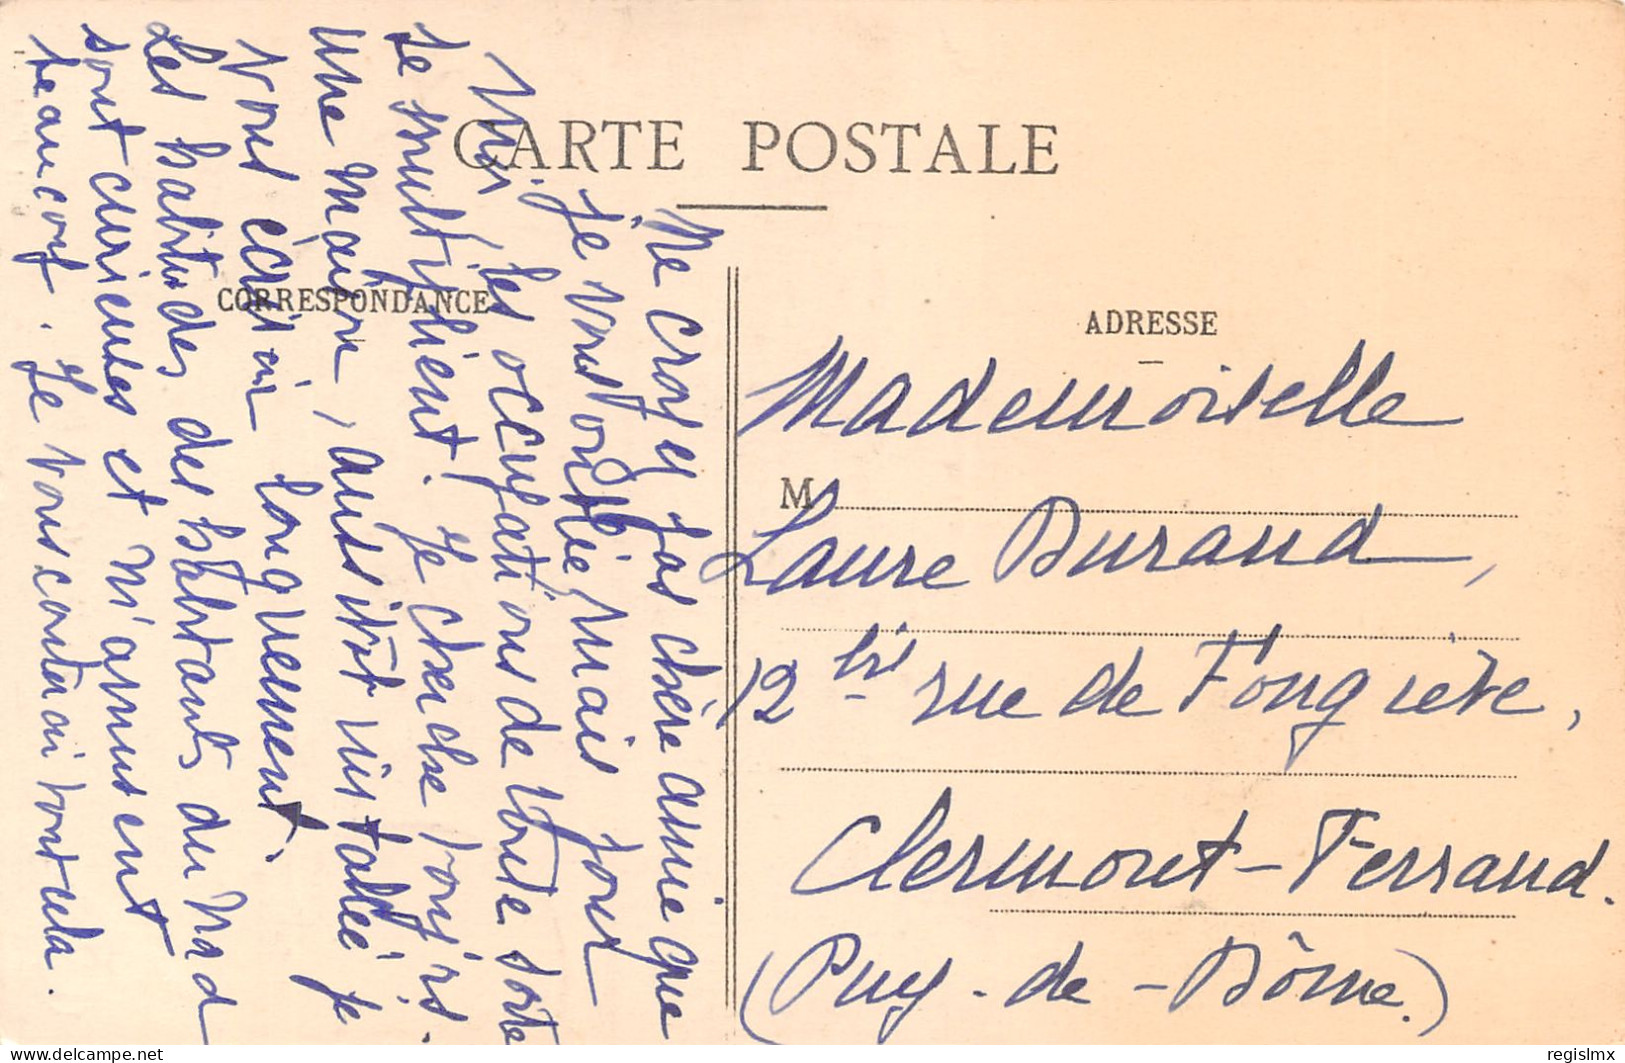 CARTE POSTALE
CORRESPONDANCE
ADRESSE
M
Ne croyez pas chère amie que
je vous oublie, mais pour
moi, les occupations de toute sorte
se multiplient! Je cherche touj'rs.
une maison, aussitôt installée je
vous écrirai longuement.
Les habitudes des habitants du Nord
sont curieuses et m'amusent
beaucoup. Je vous conterai tout cela.
Mademoiselle
Laure Durand,
12 bis rue de Fongiève,
Clermont-Ferrand.
(Puy-de-Dôme.)
delcampe.net
regislmx